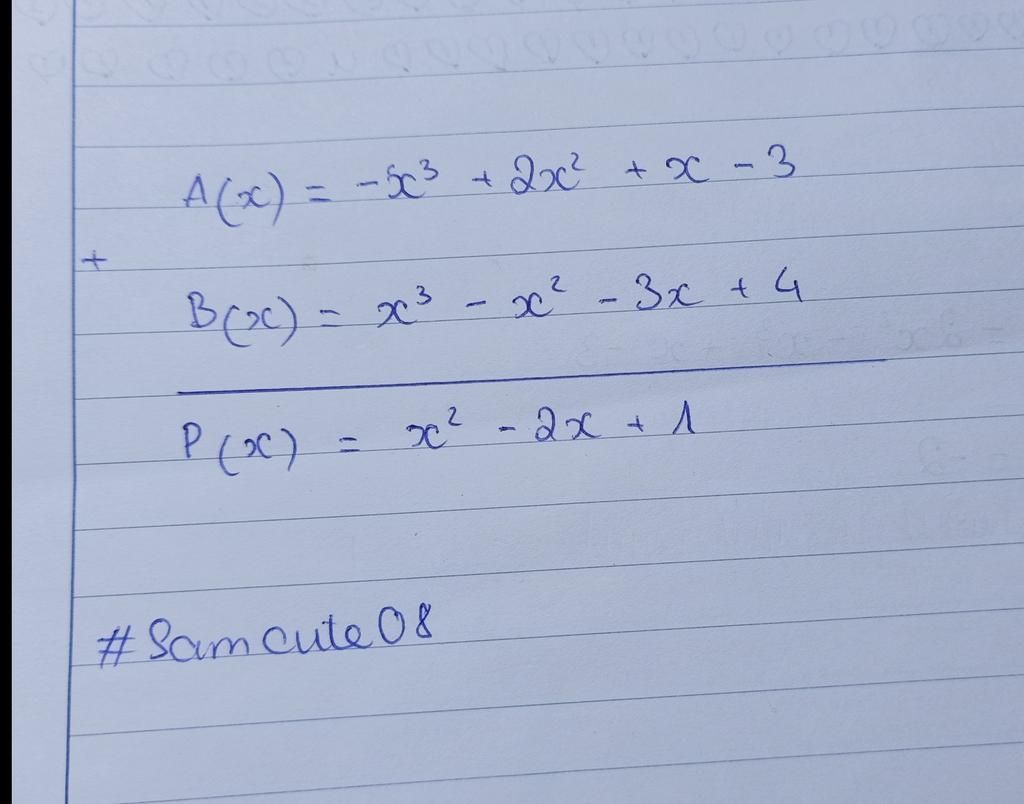 A(x) = -x³ + 2x² + x - 3
+
B(x) = x³ - x² - 3x + 4
P(x) = x² - 2x + 1
#Samcute08